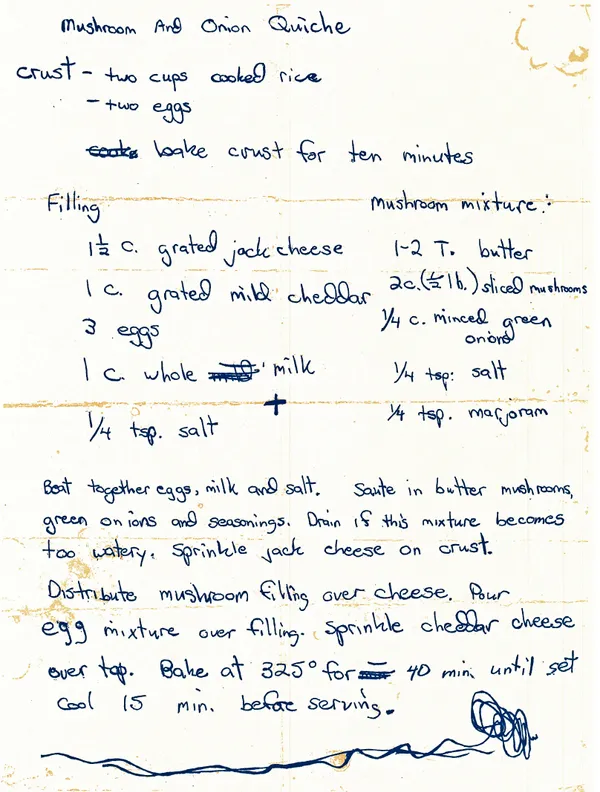 Mushroom And Onion Quiche
Crust - two cups cooked rice
- two eggs
bake crust for ten minutes
Filling
1½ c. grated jack cheese
1 c. grated mild cheddar
3 eggs
1 c. whole milk
+
1/4 tsp. salt
Mushroom mixture:
1-2 T. butter
2c. (½ lb.) sliced mushrooms
1/4 c. minced green
onions
1/4 tsp. salt
1/4 tsp. marjoram
Beat together eggs, milk and salt. Saute in butter mushrooms,
green onions and seasonings. Drain if this mixture becomes
too watery. Sprinkle jack cheese on crust.
Distribute mushroom filling over cheese. Pour
egg mixture over filling. Sprinkle cheddar cheese
over top. Bake at 325° for 40 min. until set
Cool 15 min. before serving.